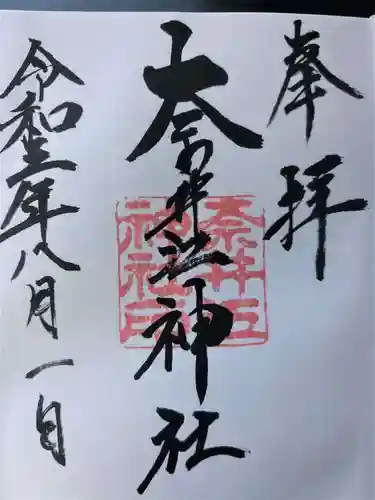 奉拝
奈井江神社
奈井江
神社印
令和三年八月一日